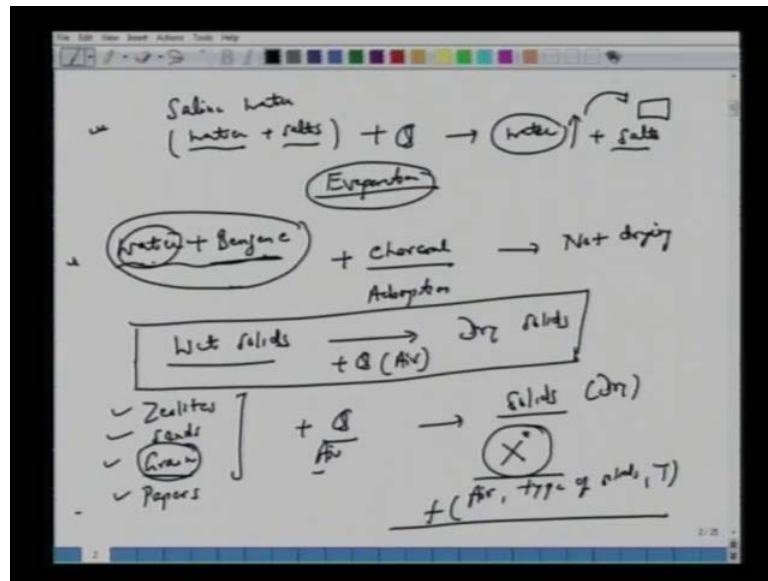 File Edit View Insert Actions Tools Help
Saline water
(water + salts) + Q → water ↑ + salts
Evaporation
Water + Benzene + charcoal → Not drying
Adsorption
Wet solids → Dry solids
+ Q (Air)
Zeolites
Sands
Grain
Papers
+ Q → solids (Dry)
Air
X*
+ (Air, type of solids, T)
2/25
2